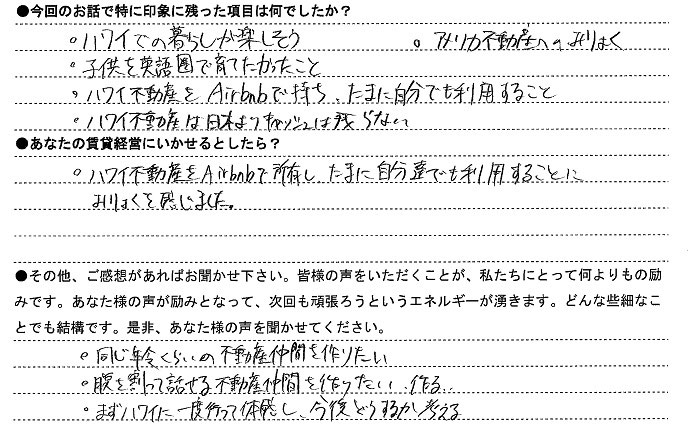 ●今回のお話で特に印象に残った項目は何でしたか？
。ハワイでの暮らしが楽しそう　。アメリカ不動産へのみりょく
。子供を英語圏で育てたかったこと
。ハワイ不動産をAirbnbで持ち、たまに自分でも利用すること
。ハワイ不動産は日本よりキャッシュは残らない
●あなたの賃貸経営にいかせるとしたら？
。ハワイ不動産をAirbnbで所有し、たまに自分達でも利用することに
みりょくを感じました。
●その他、ご感想があればお聞かせ下さい。皆様の声をいただくことが、私たちにとって何よりもの励
みです。あなた様の声が励みとなって、次回も頑張ろうというエネルギーが湧きます。どんな些細なこ
とでも結構です。是非、あなた様の声を聞かせてください。
。同じ年令くらいの不動産仲間を作りたい
。腹を割って話せる不動産仲間を作りたい、作る..
。まずハワイに一度行って体感し、今後どうするか考える